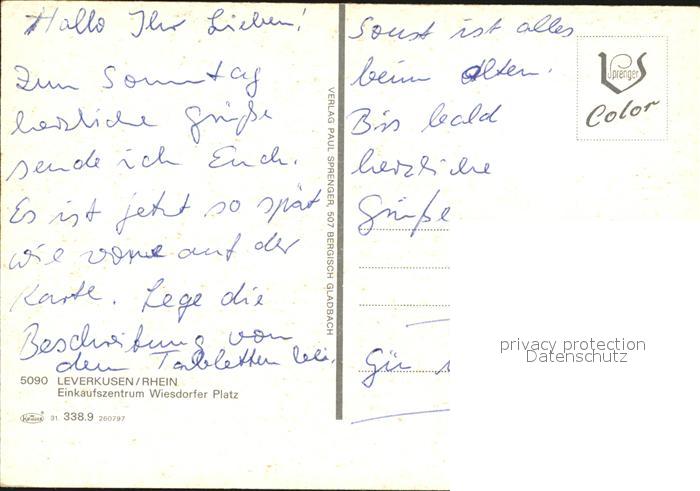 Hallo Ihr Lieben!
Zum Sonntag
herzliche Grüße
sende ich Euch.
Es ist jetzt so spät
wie vorne auf der
Karte. Lege die
Beschreibung von
den Tabletten bei.
5090 LEVERKUSEN/RHEIN
Einkaufszentrum Wiesdorfer Platz
Krüger 31 338.9 260797
VERLAG PAUL SPRENGER, 507 BERGISCH GLADBACH
Sonst ist alles
beim alten.
Bis bald
herzliche
Grüße
Sprenger
Color
privacy protection
Datenschutz